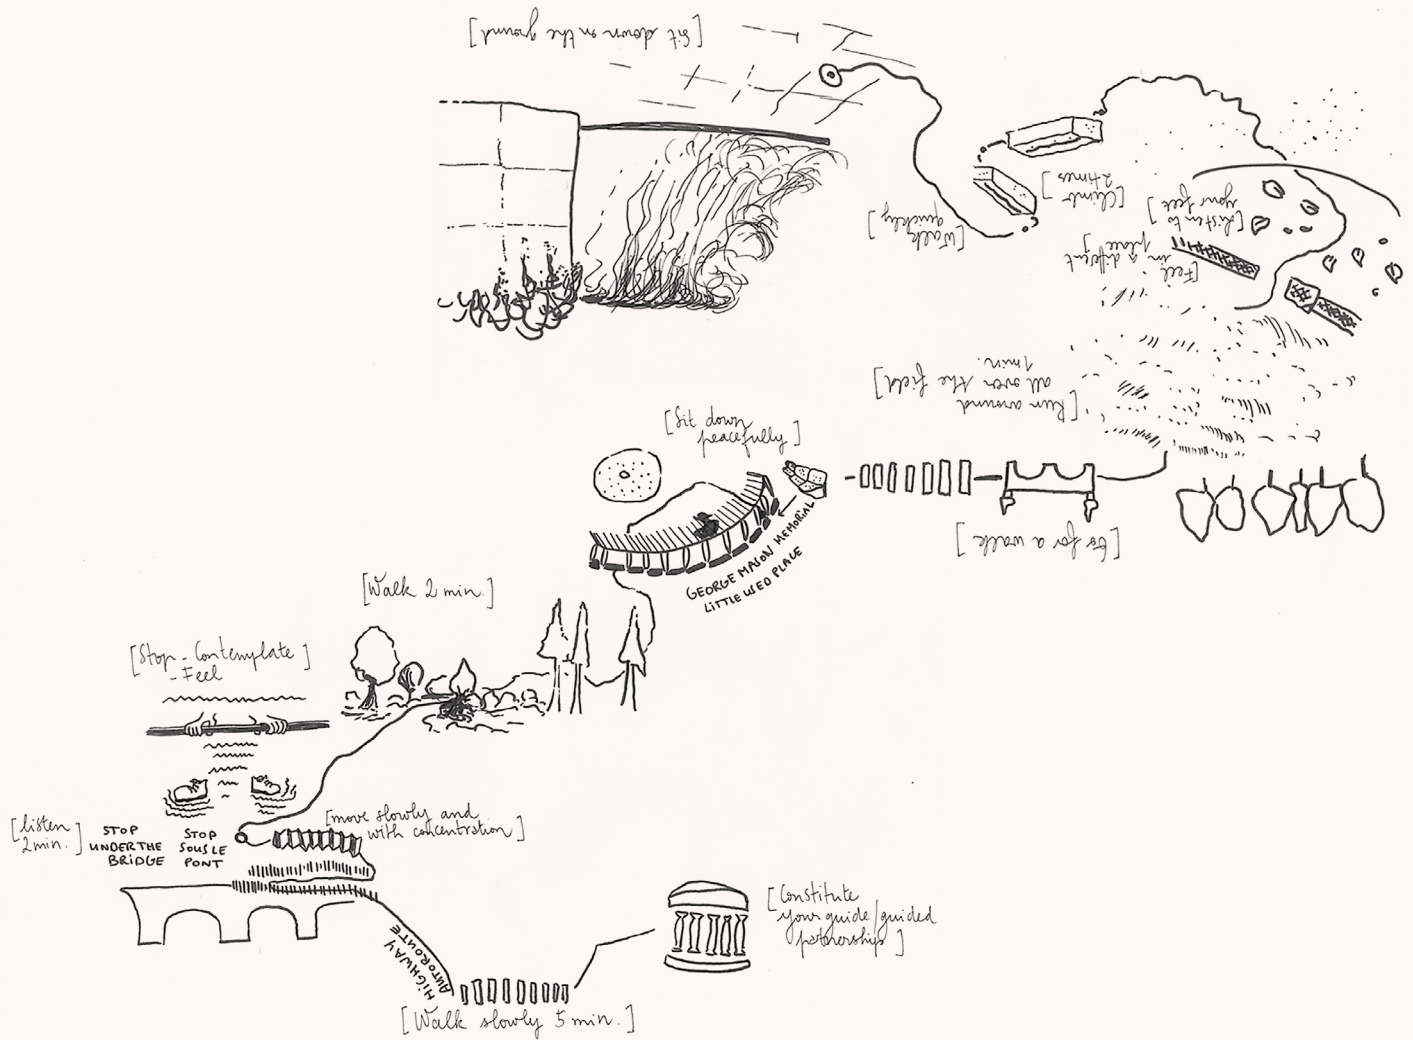 [Sit down on the ground]
[Walk
quickly]
[Climb
2 times]
[Listen to
your feet]
[Feel
in a different
place]
[Run around
all over the field]
1 min.
[Sit down
peacefully]
GEORGE MASON MEMORIAL
LITTLE USED PLACE
[Go for a walk]
[Walk 2 min.]
[Stop - Contemplate
- Feel]
[listen
2 min.]
STOP
UNDER THE
BRIDGE
STOP
SOUS LE
PONT
[move slowly and
with concentration]
HIGHWAY
AUTOROUTE
[Walk slowly 5 min.]
[Constitute
your guide/guided
partnership]